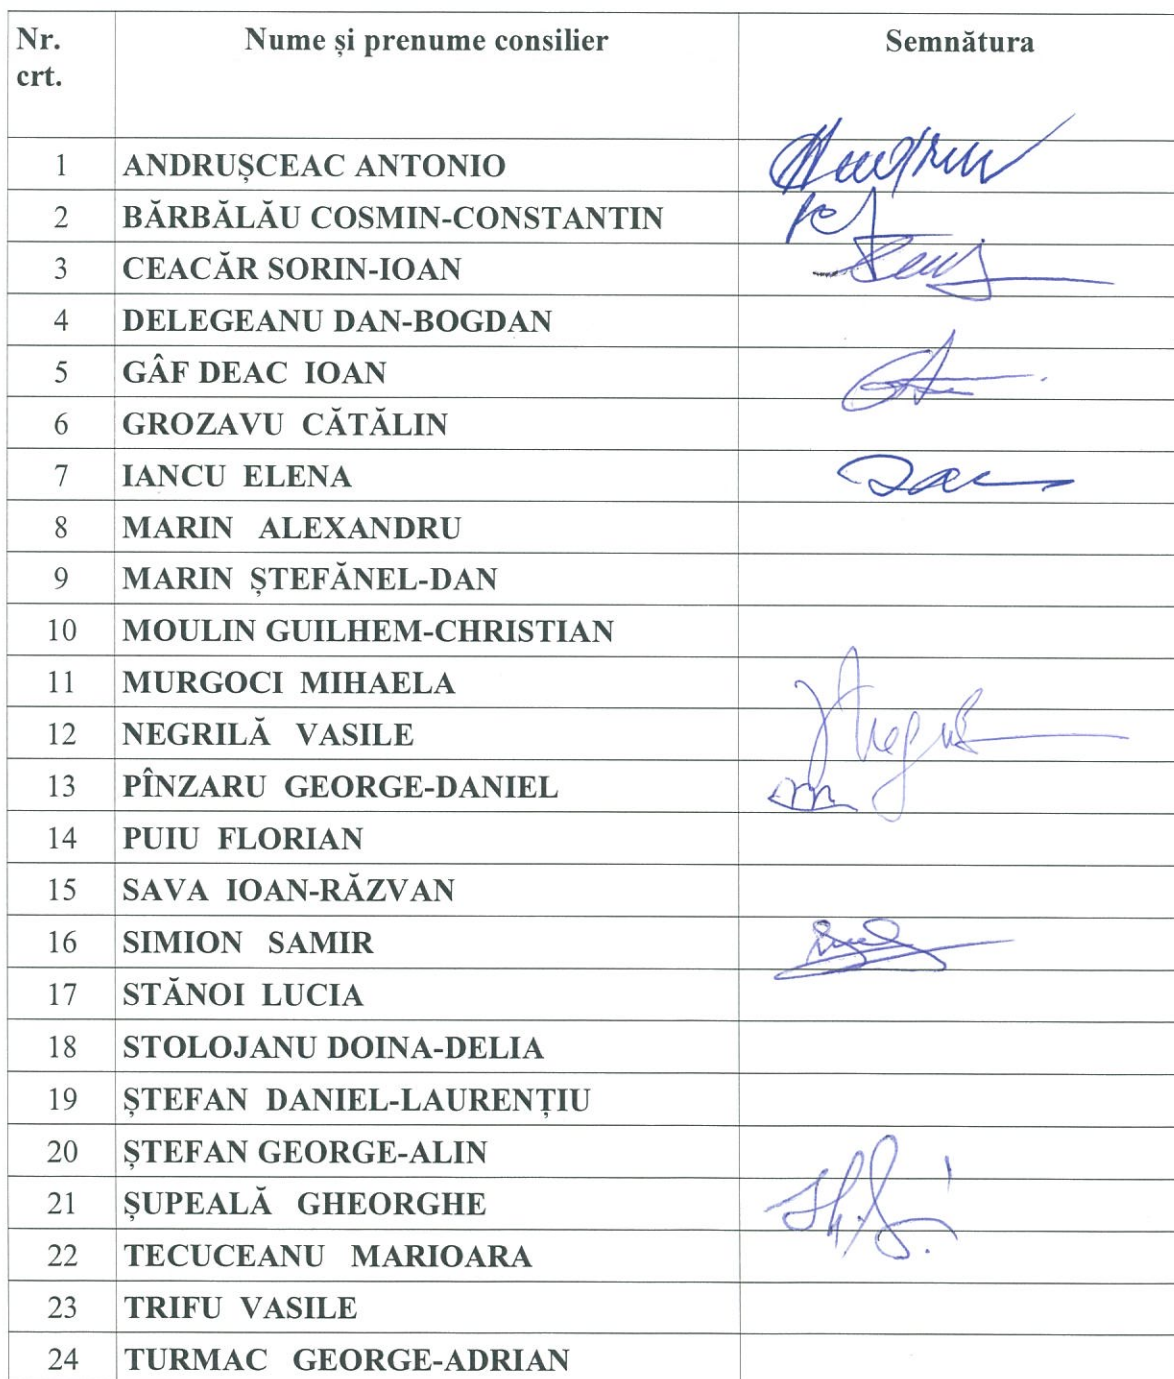 Nr. crt. Nume și prenume consilier Semnătura
1 ANDRUȘCEAC ANTONIO
2 BĂRBĂLĂU COSMIN-CONSTANTIN
3 CEACĂR SORIN-IOAN
4 DELEGEANU DAN-BOGDAN
5 GÂF DEAC IOAN
6 GROZAVU CĂTĂLIN
7 IANCU ELENA
8 MARIN ALEXANDRU
9 MARIN ȘTEFĂNEL-DAN
10 MOULIN GUILHEM-CHRISTIAN
11 MURGOCI MIHAELA
12 NEGRILĂ VASILE
13 PÎNZARU GEORGE-DANIEL
14 PUIU FLORIAN
15 SAVA IOAN-RĂZVAN
16 SIMION SAMIR
17 STĂNOI LUCIA
18 STOLOJANU DOINA-DELIA
19 ȘTEFAN DANIEL-LAURENȚIU
20 ȘTEFAN GEORGE-ALIN
21 ȘUPEALĂ GHEORGHE
22 TECUCEANU MARIOARA
23 TRIFU VASILE
24 TURMAC GEORGE-ADRIAN